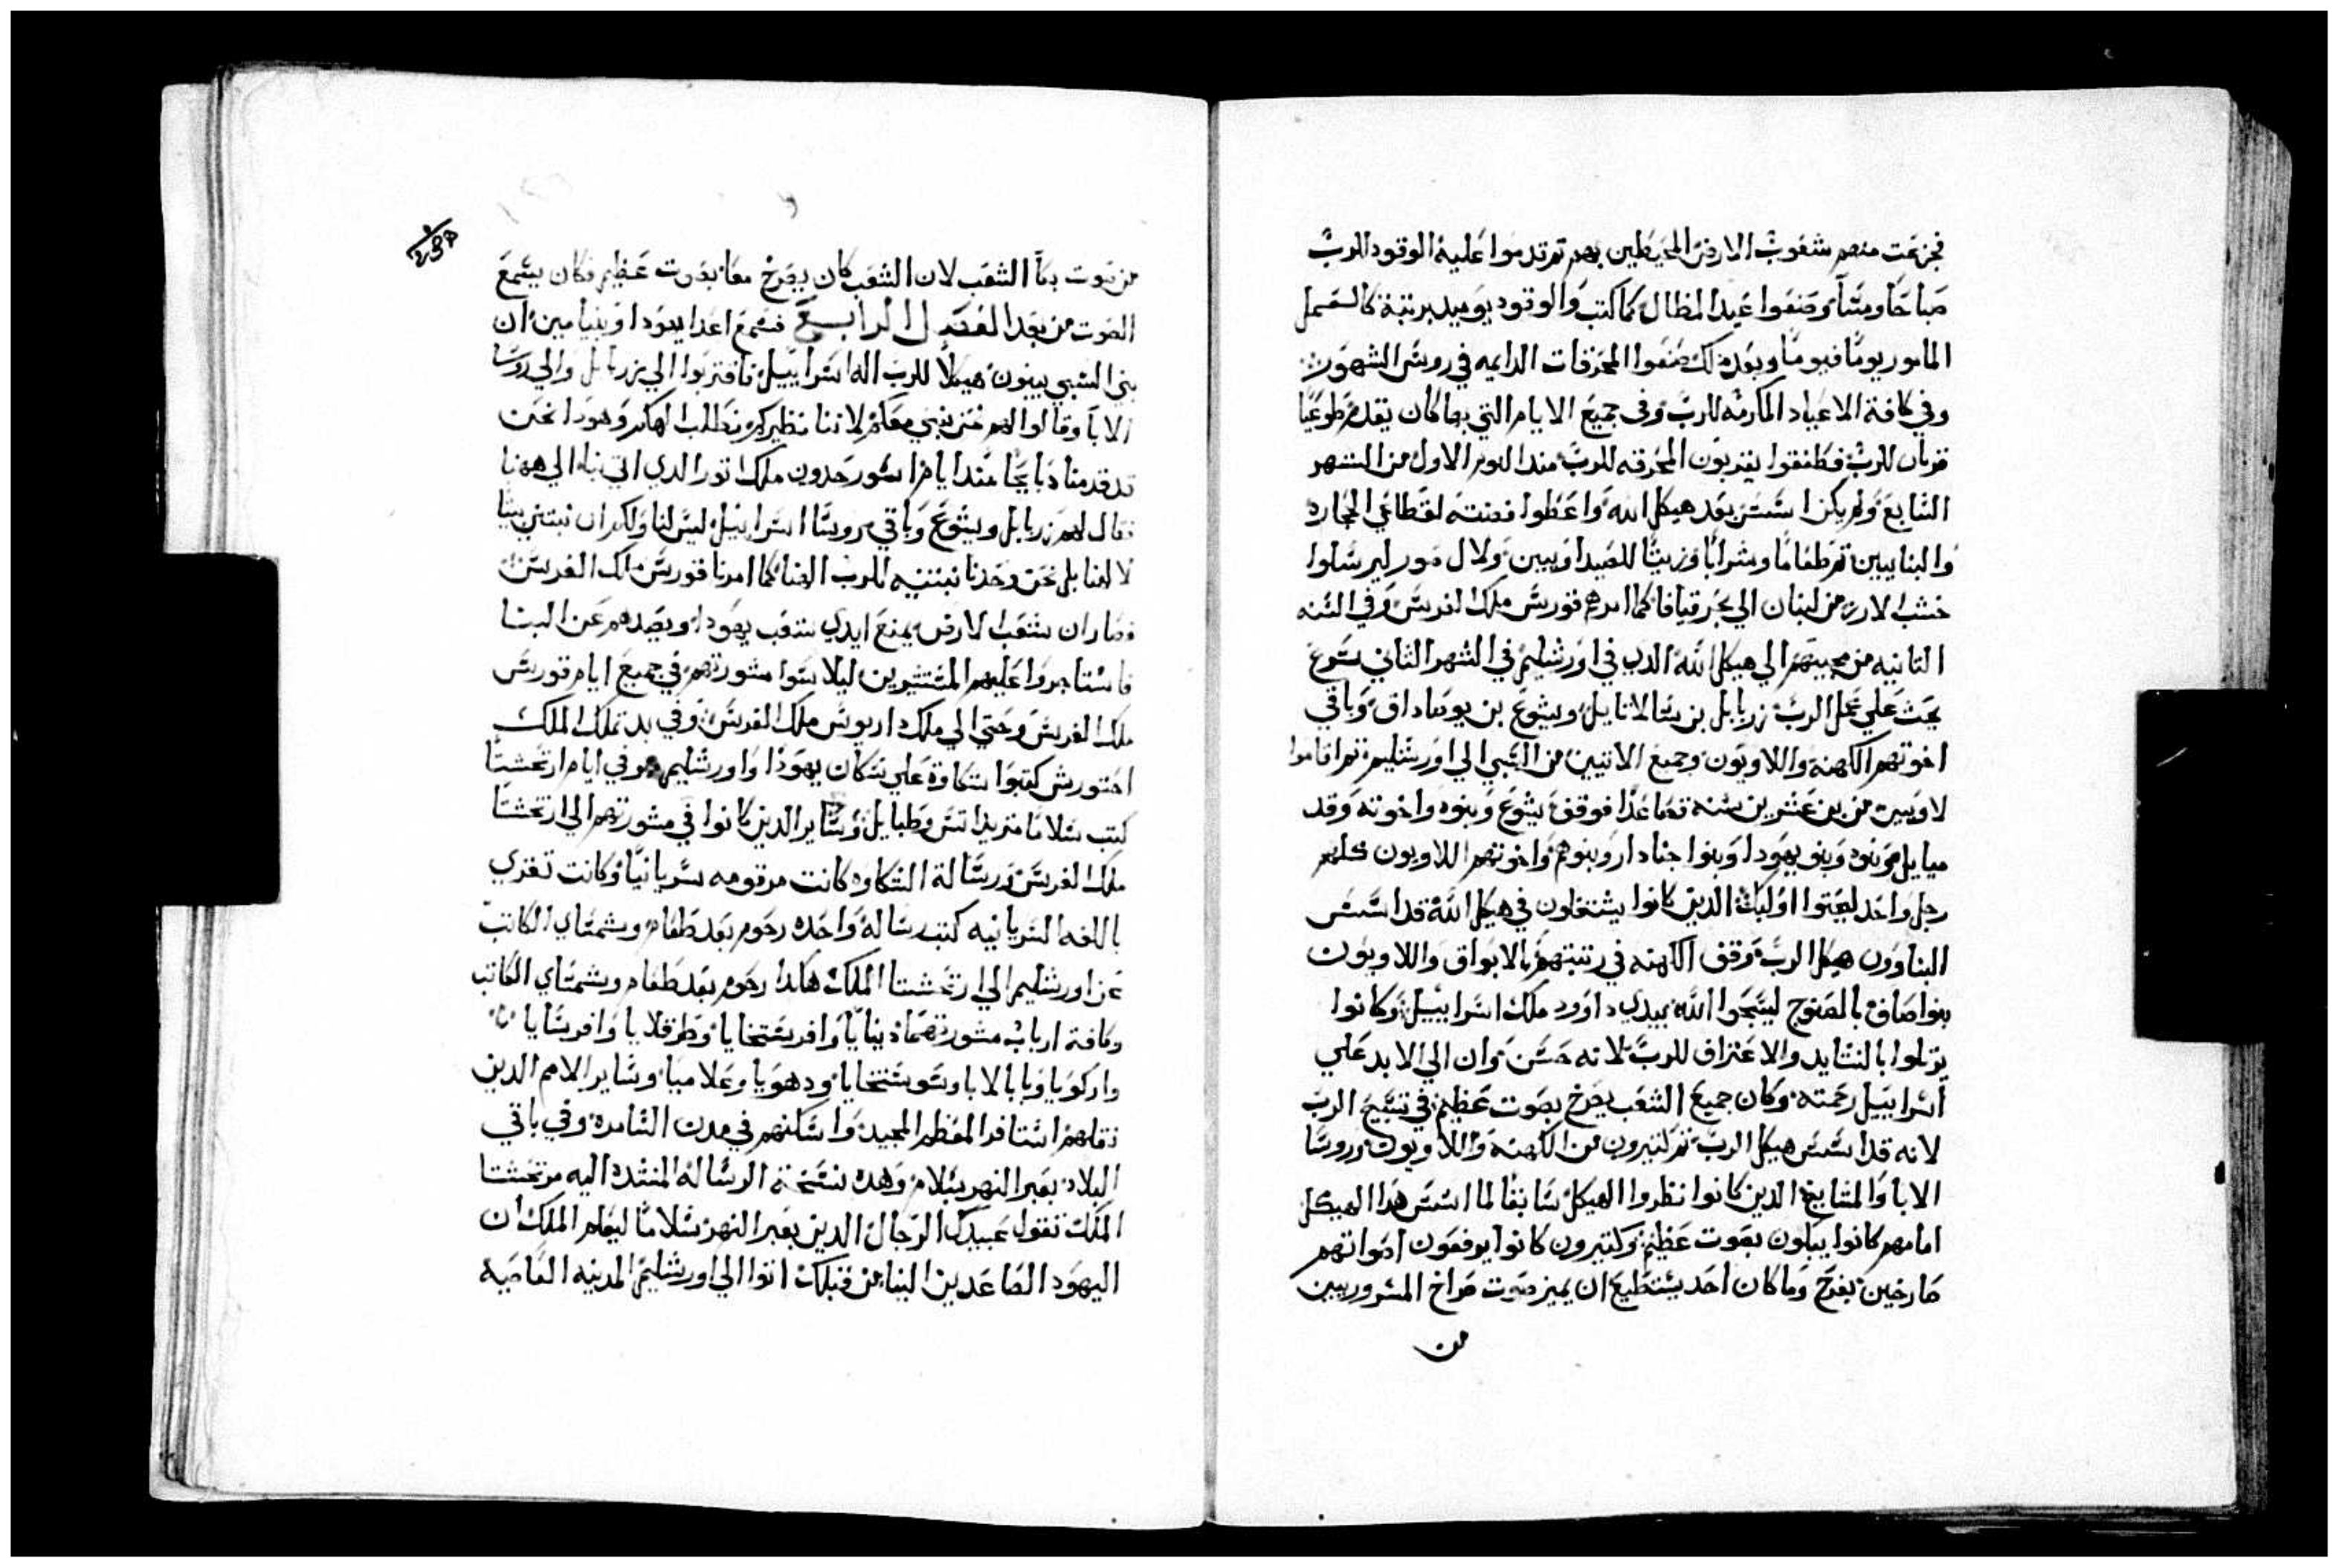 فجزعت منهم شعوب الارض المحيطين بهم ثم قدموا عليه الوقود للرب
صباحا ومسآ وصنعوا عيد المظال كما كتب والوقود يوميد برتبة كالعمل
المامور يوما فيوما وبعد دلك صنعوا المحرقات الدايمه في روس الشهور
وفي كافة الاعياد المكرمه للرب وفي جميع الايام التي بها كان يقدم طوعيا
قربان للرب فطفقوا يقربون المحرقه للرب مند اليوم الاول من الشهر
السابع ولم يكن اسس بعد هيكل الله واعطوا فضته لقطاعي الحجاره
والبنايين ثم طعاما وشرابا وزيتا للصيداويين ولال صور ليرسلوا
خشب الارز من لبنان الي بحر قيافا كما امرهم قورس ملك الفرس وفي السنه
التانيه من مجيتهم الي هيكل الله الدي في اورشليم في الشهر التاني شرع
يحث علي عمل الرب زربابل بن سالاتايل ويشوع بن يوصاداق وباقي
اخوتهم الكهنه واللاويون وجميع الاتيين من السبي الي اورشليم ثم اقاموا
لاويين من بن عشرين سنه فصاعدا فوقف يشوع وبنوه واخوته وقد
ميايل وبنوه وبنو يهودا وبنوا حناداد وبنوهم واخوتهم اللاويون كلهم
رجل واحد ليحتوا اوليك الدين كانوا يشتغلون في هيكل الله قد اسس
البناوون هيكل الرب ووقف الكهنه في رتبتهم بالابواق واللاويون
بنوا صاف بالصنوج ليسبحوا الله بيدي داوود ملك اسراييل وكانوا
يرتلوا بالنشايد والاعتراف للرب لانه حسن وان الي الابد علي
اسراييل رحمته وكان جميع الشعب يصرخ بصوت عظيم في تسبيح الرب
لانه قد اسس هيكل الرب ثم كتيرون من الكهنه واللاويون وروسا
الابا والمشايخ الدين كانوا نظروا الهيكل سابقا لما اسس هدا الهيكل
امامهم كانوا يبكون بصوت عظيم وكتيرون كانوا يرفعون اصواتهم
صارخين بفرح وما كان احد يستطيع ان يميز صوت صراخ المسروريين
من
من صوت بكآ الشعب لان الشعب كان يصرخ معا بصوت عظيم فكان يسمع
الصوت من بعد الفصل الرابع فسمع اعدا يهودا وبنيامين ان
بني السبي يبنون هيكلا للرب اله اسراييل فاقتربوا الي زربابل والي روسا
الابآ وقالوا لهم نحن نبني معكم لاننا نظيركم نطلب الهكم وهودا نحن
قد قدمنا دبايحا مند ايام اسور حدون ملك اتور الدي اتي بنا الي ههنا
فقال لهم زربابل ويشوع وباقي روسا اسراييل ليس لنا ولكم ان نبتني بيتا
لالهنا بل نحن وحدنا نبتنيه للرب الهنا كما امرنا قورس ملك الفرس
فصار ان شعب الارض يمنع ايدي شعب يهودا ويصدهم عن البنا
فاستاجروا عليهم المستشيرين ليلاشوا مشورتهم في جميع ايام قورس
ملك الفرس وحتي الي ملك داريوس ملك الفرس وفي بد تملك الملك
احتورش كتبوا شكاوة علي سكان يهودا واورشليم وفي ايام ارتحشستا
كتب سلاما متريداتس وطبايل وساير الدين كانوا في مشورتهم الي ارتحشستا
ملك الفرس ورسالة الشكاوه كانت مرقومه سريانيا وكانت تقري
باللغه السريانيه كتب رسالة واحده رحوم بعد طعام وشمساي الكاتب
من اورشليم الي ارتحشستا الملك هكدا رحوم بعد طعام وشمساي الكاتب
وكافة ارباب مشورتهما دينايا وافرستخايا وطرفلايا وافرسايا
واركويا وبابالايا وسوستخايا ودهويا وعلاميا وساير الامم الدين
نقلهم اسنافر المعظم المجيد واسكنهم في مدن السامره وفي باقي
البلاد بعبر النهر بسلام وهده نسخة الرساله المنفده اليه مرتحشستا
الملك تقول عبيدك الرجال الدين بعبر النهر سلاما ليعلم الملك ان
اليهود الصاعدين الينا من قبلك اتوا الي اورشليم المدينه العاصية